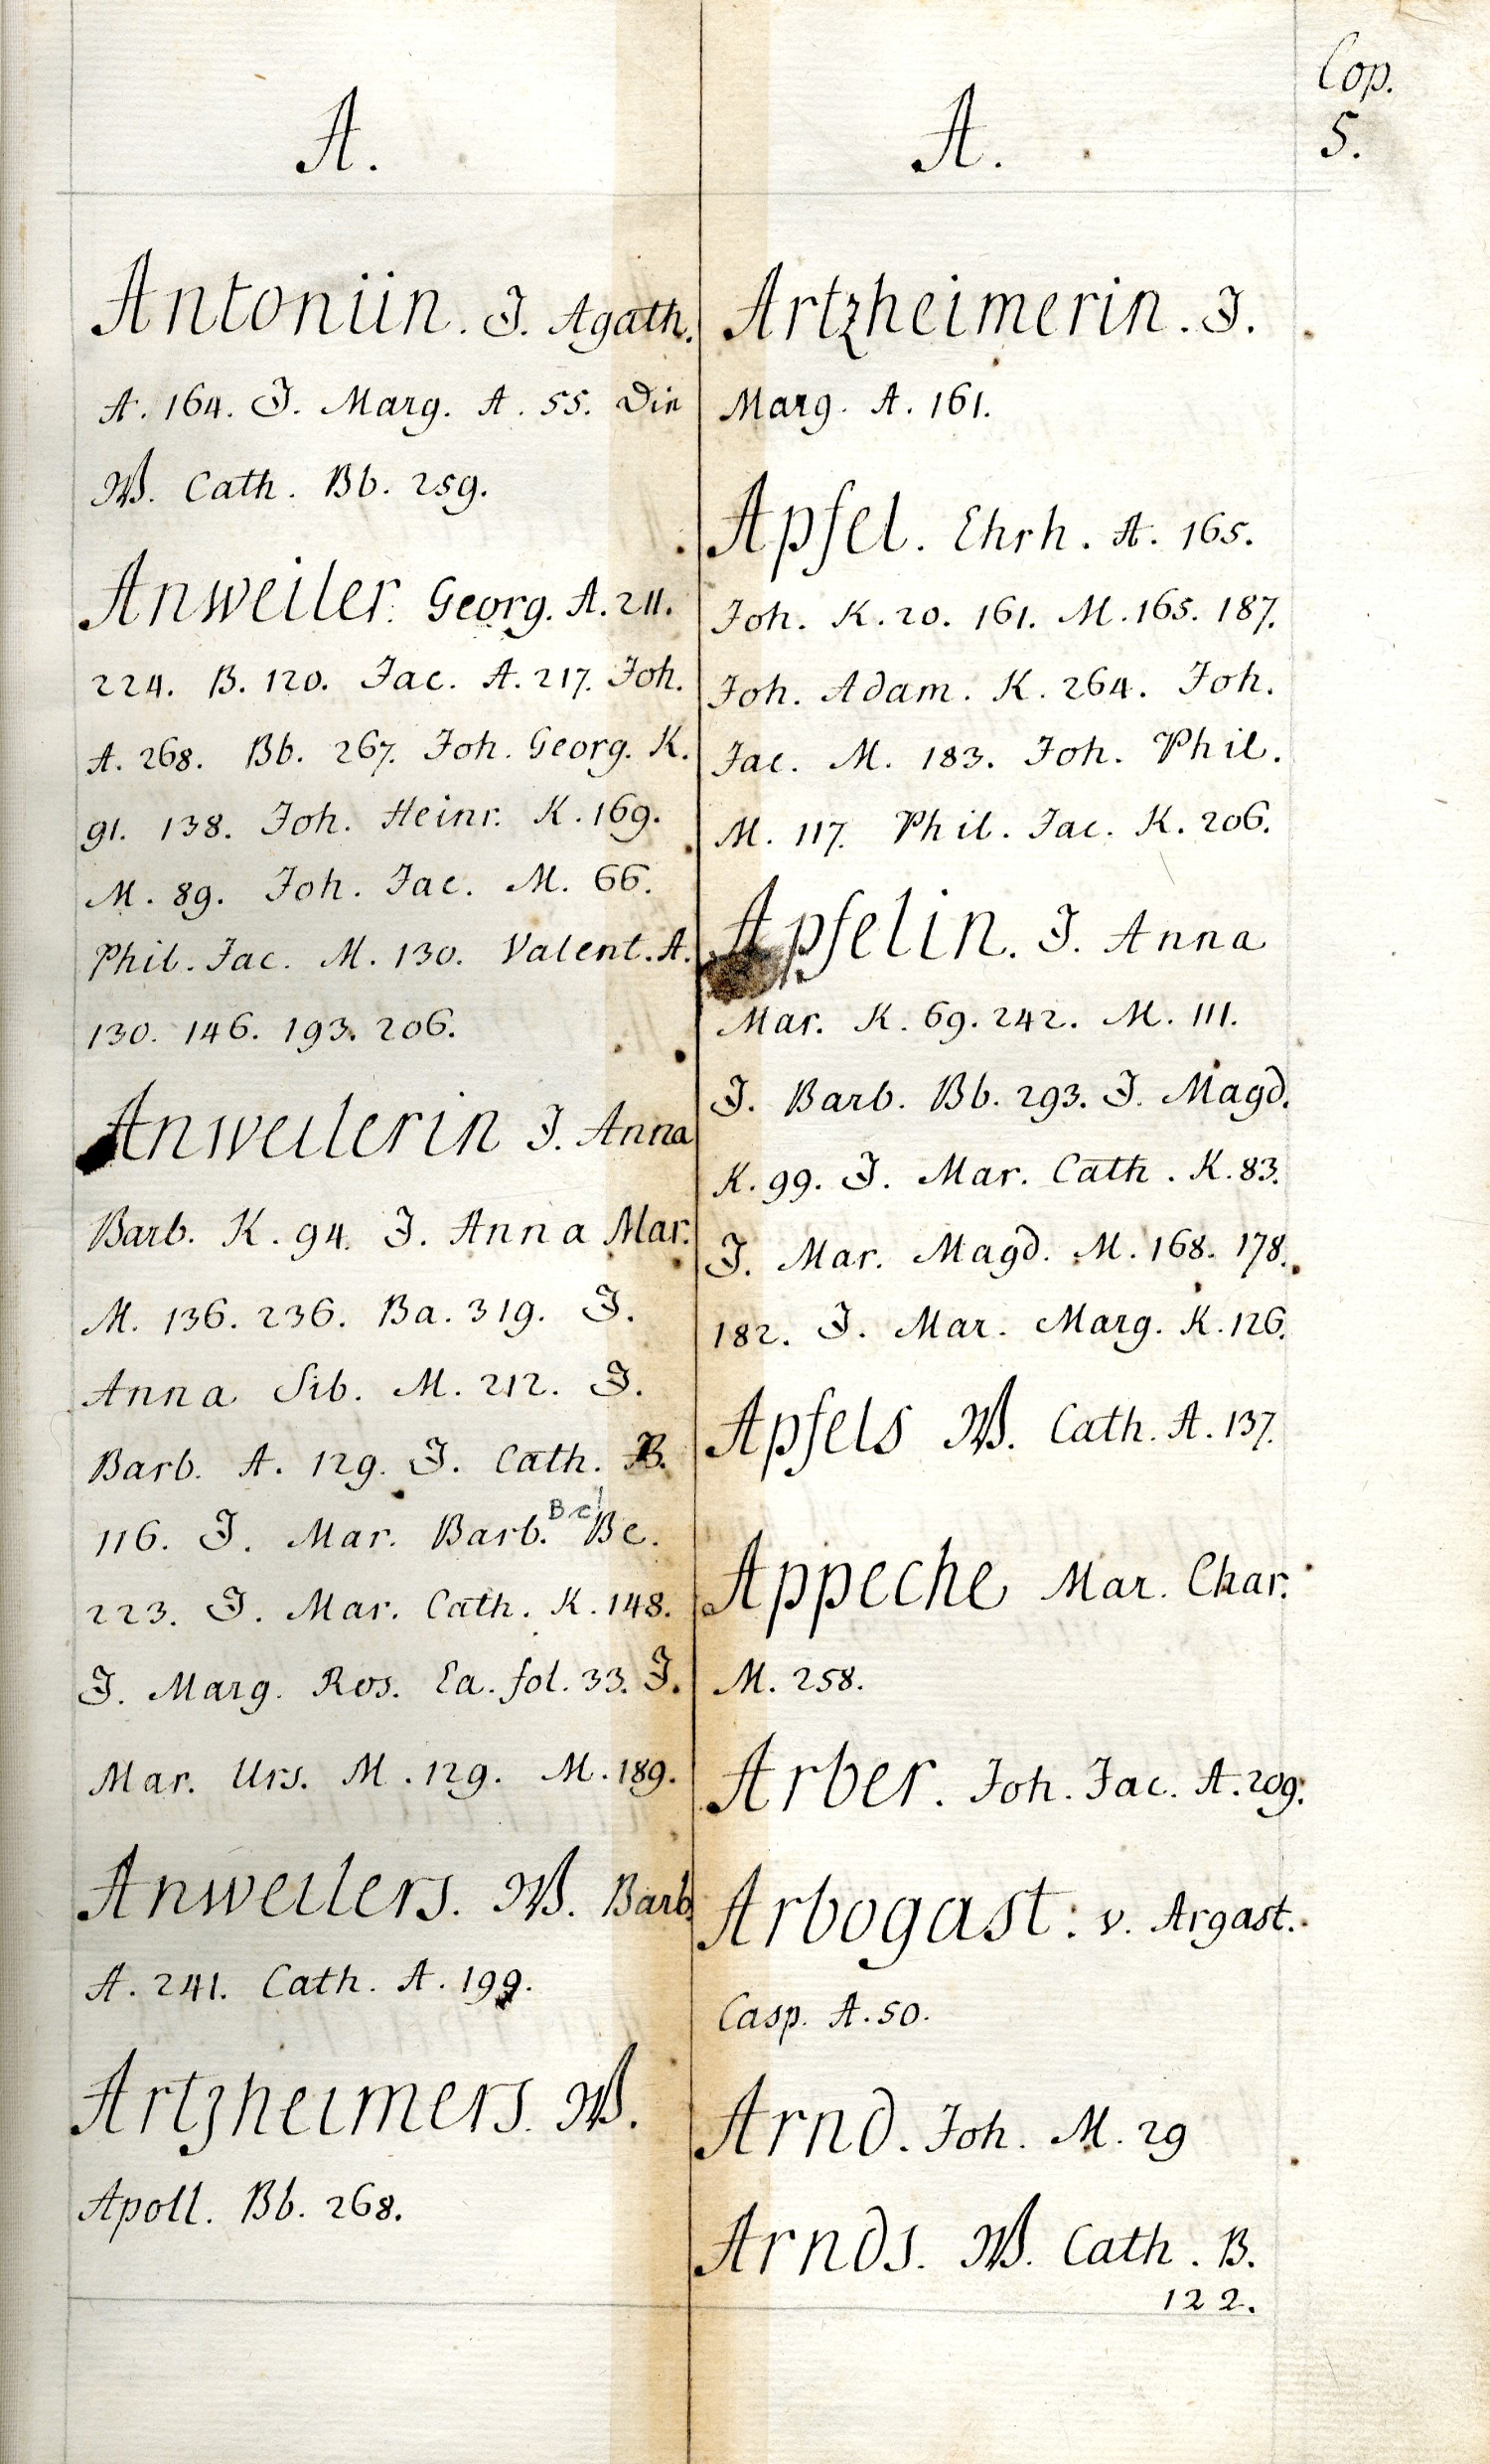 Cop.
5.
A.
Antoniin. J. Agath.
A. 164. J. Marg. A. 55. Die
W. Cath. Bb. 259.
Anweiler. Georg. A. 211.
224. B. 120. Jac. A. 217. Joh.
A. 268. Bb. 267. Joh. Georg. K.
91. 138. Joh. Heinr. K. 169.
M. 89. Joh. Jac. M. 66.
Phil. Jac. M. 130. Valent. A.
130. 146. 193. 206.
Anweilerin J. Anna
Barb. K. 94. J. Anna Mar.
M. 136. 236. Ba. 319. J.
Anna Sib. M. 212. J.
Barb. A. 129. J. Cath. B.
116. J. Mar. Barb. Bc! Bc.
223. J. Mar. Cath. K. 148.
J. Marg. Ros. Ea. fol. 33. J.
Mar. Urs. M. 129. M. 189.
Anweilers. W. Barb.
A. 241. Cath. A. 199.
Artzheimers. W.
Apoll. Bb. 268.
A.
Artzheimerin. J.
Marg. A. 161.
Apfel. Ehrh. A. 165.
Joh. K. 20. 161. M. 165. 187.
Joh. Adam. K. 264. Joh.
Jac. M. 183. Joh. Phil.
M. 117. Phil. Jac. K. 206.
Apfelin. J. Anna
Mar. K. 69. 242. M. 111.
J. Barb. Bb. 293. J. Magd.
K. 99. J. Mar. Cath. K. 83.
J. Mar. Magd. M. 168. 178.
182. J. Mar. Marg. K. 126.
Apfels W. Cath. A. 137.
Appeche Mar. Char.
M. 258.
Arber. Joh. Jac. A. 209.
Arbogast: v. Argast.
Casp. A. 50.
Arnd. Joh. M. 29
Arnds. W. Cath. B.
122.